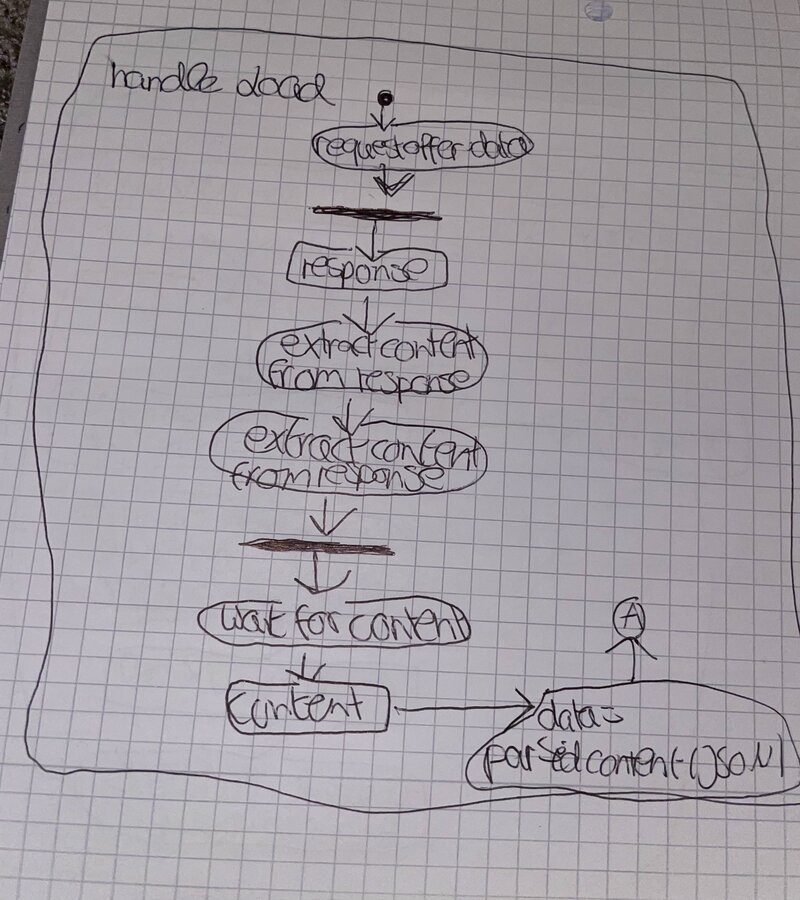 handle load
request offer data
response
extract content
from response
extract content
from response
wait for content
content
A
data =
parsed content (JSON)